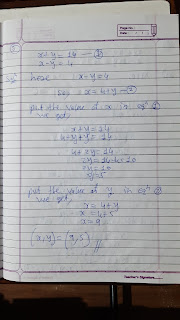 ①
x+y = 14 — ①
x-y = 4
Solⁿ here x-y=4
x = 4+y — ②
put the value of x in eqⁿ ①
we get,
x+y = 14
4+y+y = 14
4+2y = 14
2y = 14-4=10
2y = 10
y=5
put the value of y in eqⁿ ②
we get,
x = 4+y
x = 4+5
x = 9
(x,y) = (9,5)
Teacher's Signature